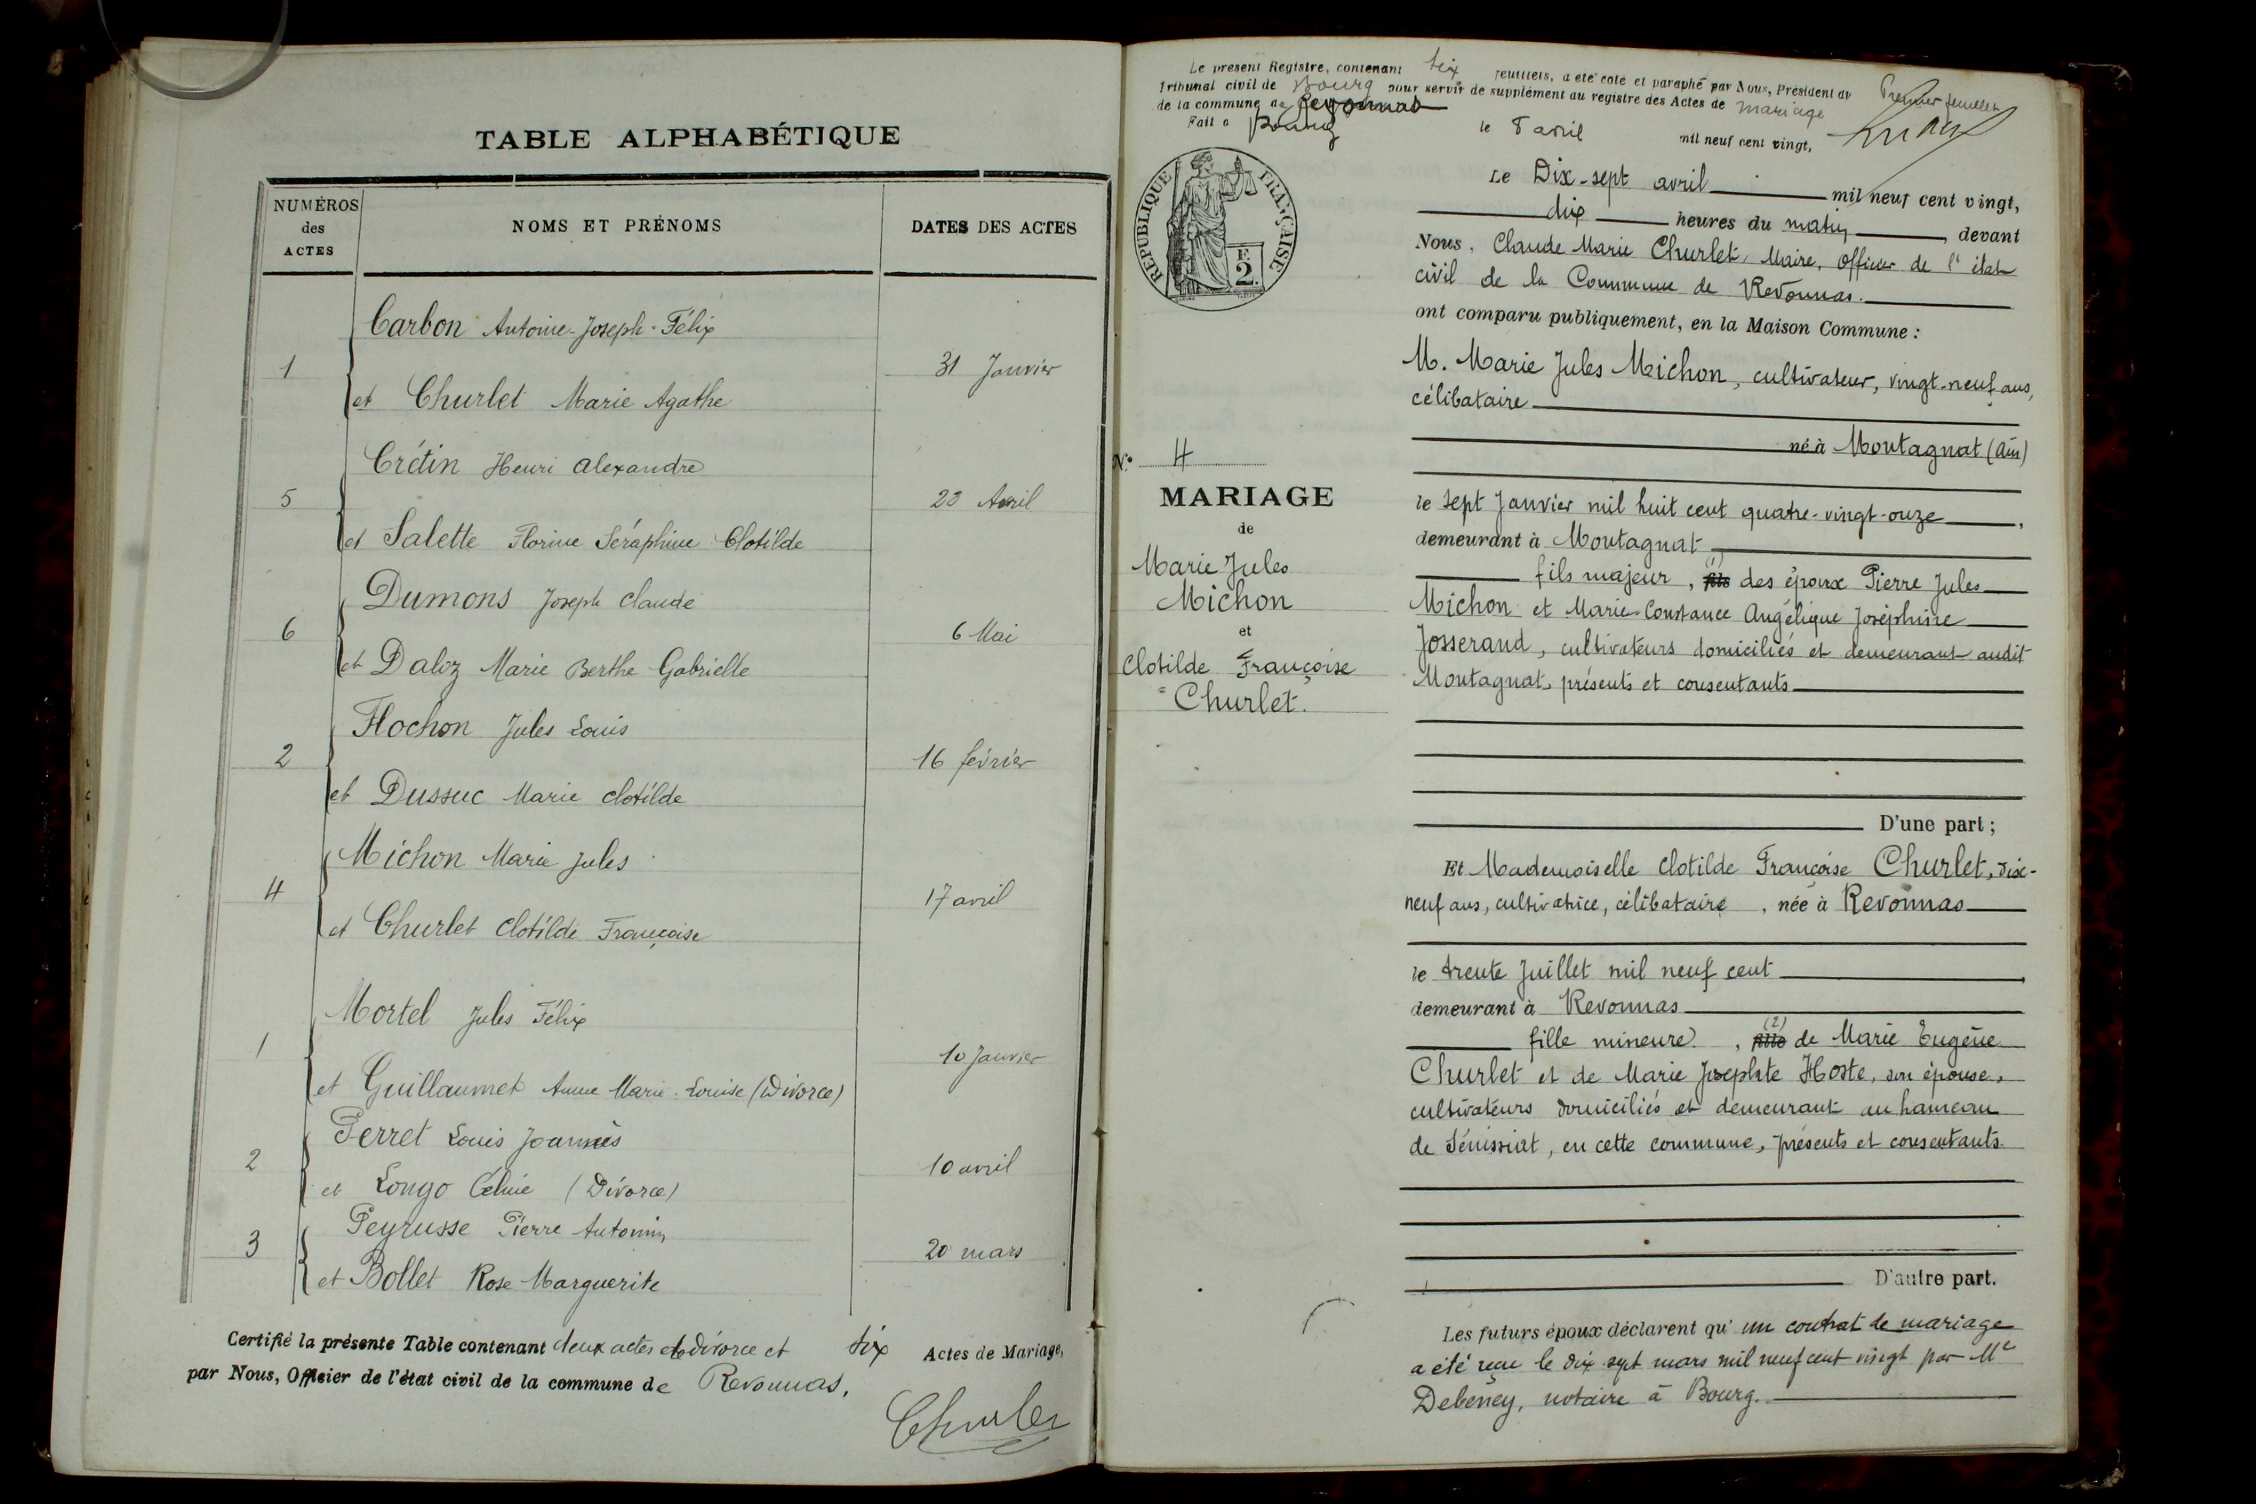 TABLE ALPHABÉTIQUE
NUMÉROS
des
ACTES
NOMS ET PRÉNOMS
DATES DES ACTES
Carbon Antoine-Joseph-Félix
1
31 Janvier
et Churlet Marie Agathe
Crétin Henri Alexandre
5
23 Avril
et Salette Florine Séraphine Clotilde
Dumons Joseph Claude
6
6 Mai
et Daloz Marie Berthe Gabrielle
Flochon Jules Louis
2
16 février
et Dussuc Marie Clotilde
Michon Marie Jules
4
17 avril
et Churlet Clotilde Françoise
Mortel Jules Félix
1
10 Janvier
et Guillaumet Anne Marie-Louise (Divorce)
Perret Louis Joannès
2
10 avril
et Longo Céline (Divorce)
Peyrusse Pierre Antonin
3
20 mars
et Bollet Rose Marguerite
Certifié la présente Table contenant deux actes de divorce et six Actes de Mariage,
par Nous, Officier de l'état civil de la commune de Revonnas.
Churlet
Le présent Registre, contenant six feuillets, a été coté et paraphé par Nous, Président du
Tribunal civil de Bourg pour servir de supplément au registre des Actes de mariage
de la commune de
Fait à Bourg le 8 avril mil neuf cent vingt,
Premier feuillet
RÉPUBLIQUE FRANÇAISE
F.
2.
Le Dix-sept avril mil neuf cent vingt,
dix heures du matin, devant
Nous, Claude Marie Churlet, Maire, officier de l'état
civil de la Commune de Revonnas.
ont comparu publiquement, en la Maison Commune :
M. Marie Jules Michon, cultivateur, vingt-neuf ans,
célibataire
né à Montagnat (Ain)
N° 4
MARIAGE
de
Marie Jules
Michon
et
Clotilde Françoise
Churlet.
le sept Janvier mil huit cent quatre-vingt-onze,
demeurant à Montagnat
fils majeur, (1) fils des époux Pierre Jules
Michon et Marie-Constance Angélique Joséphine
Josserand, cultivateurs domiciliés et demeurant audit
Montagnat, présents et consentants
D'une part ;
Et Mademoiselle Clotilde Françoise Churlet, dix-
neuf ans, cultivatrice, célibataire, née à Revonnas
le trente Juillet mil neuf cent
demeurant à Revonnas
fille mineure, (2) fille de Marie Eugène
Churlet et de Marie Josephte Hoste, son épouse,
cultivateurs domiciliés et demeurant au hameau
de Sénissiat, en cette commune, présents et consentants.
D'autre part.
Les futurs époux déclarent qu'un contrat de mariage
a été reçu le dix sept mars mil neuf cent vingt par Me
Debeney, notaire à Bourg.